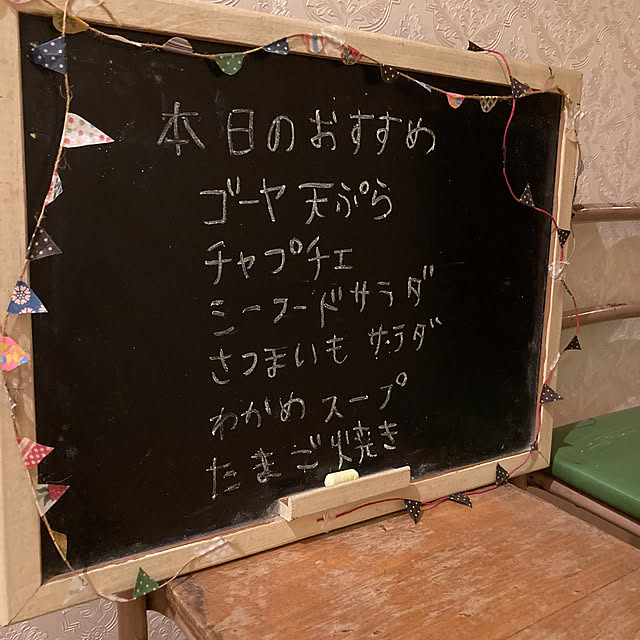 本日のおすすめ
ゴーヤ天ぷら
チャプチェ
シーフードサラダ
さつまいもサラダ
わかめスープ
たまご焼き